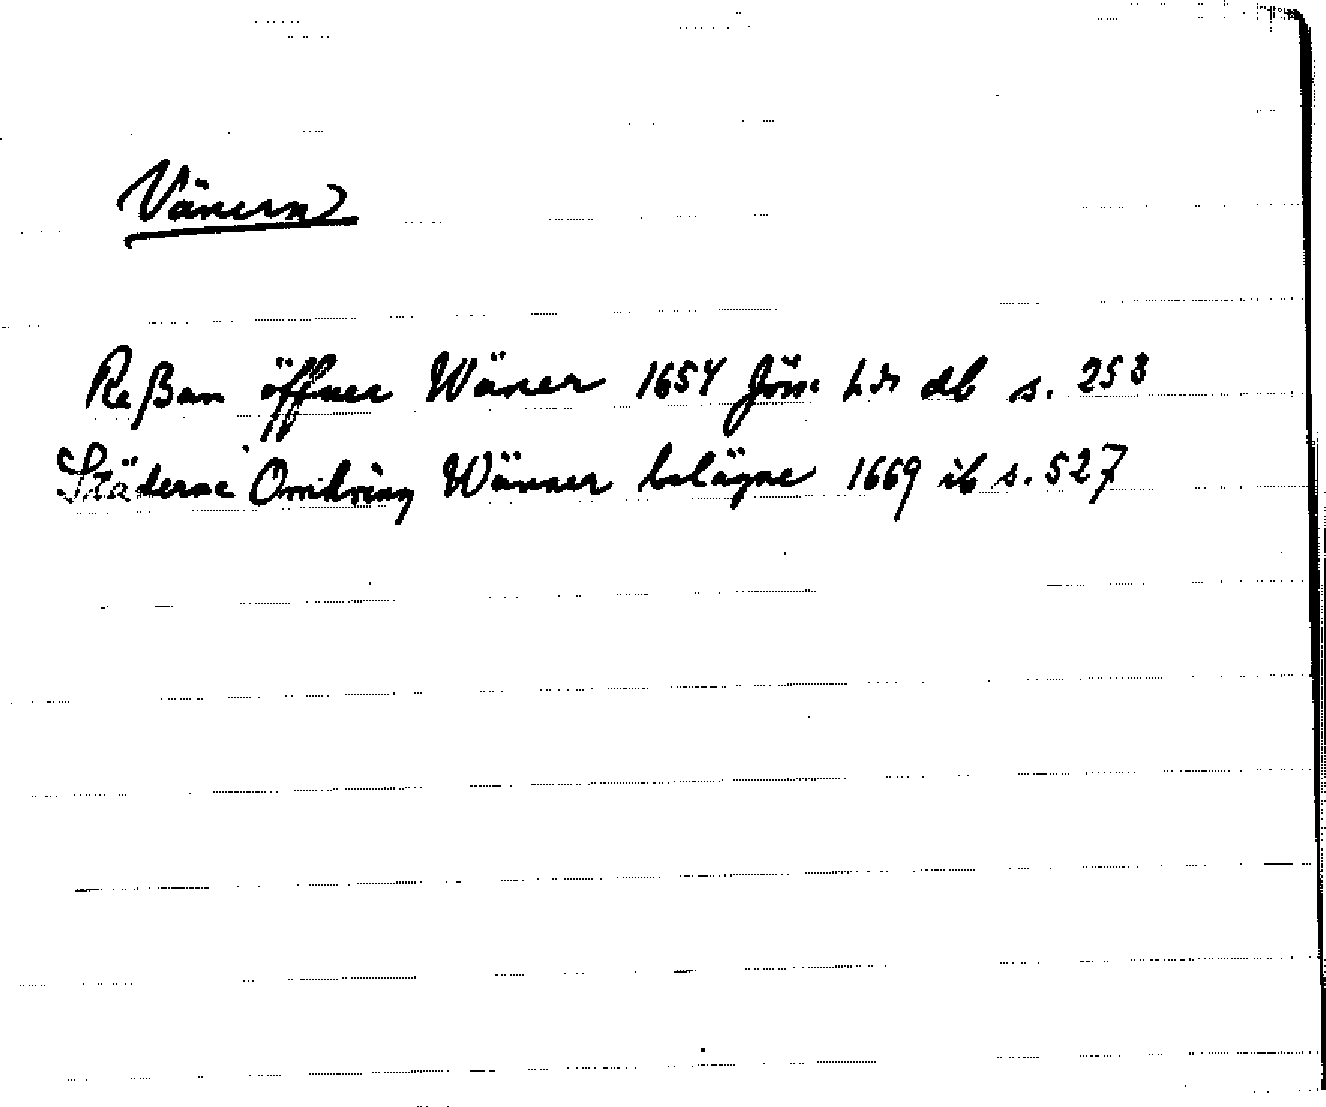 Vänern
Reßan öffuer Wäner 1654 Jön: Lds db s. 258
Städerne Omkring Wänner belägne 1669 ib s. 527